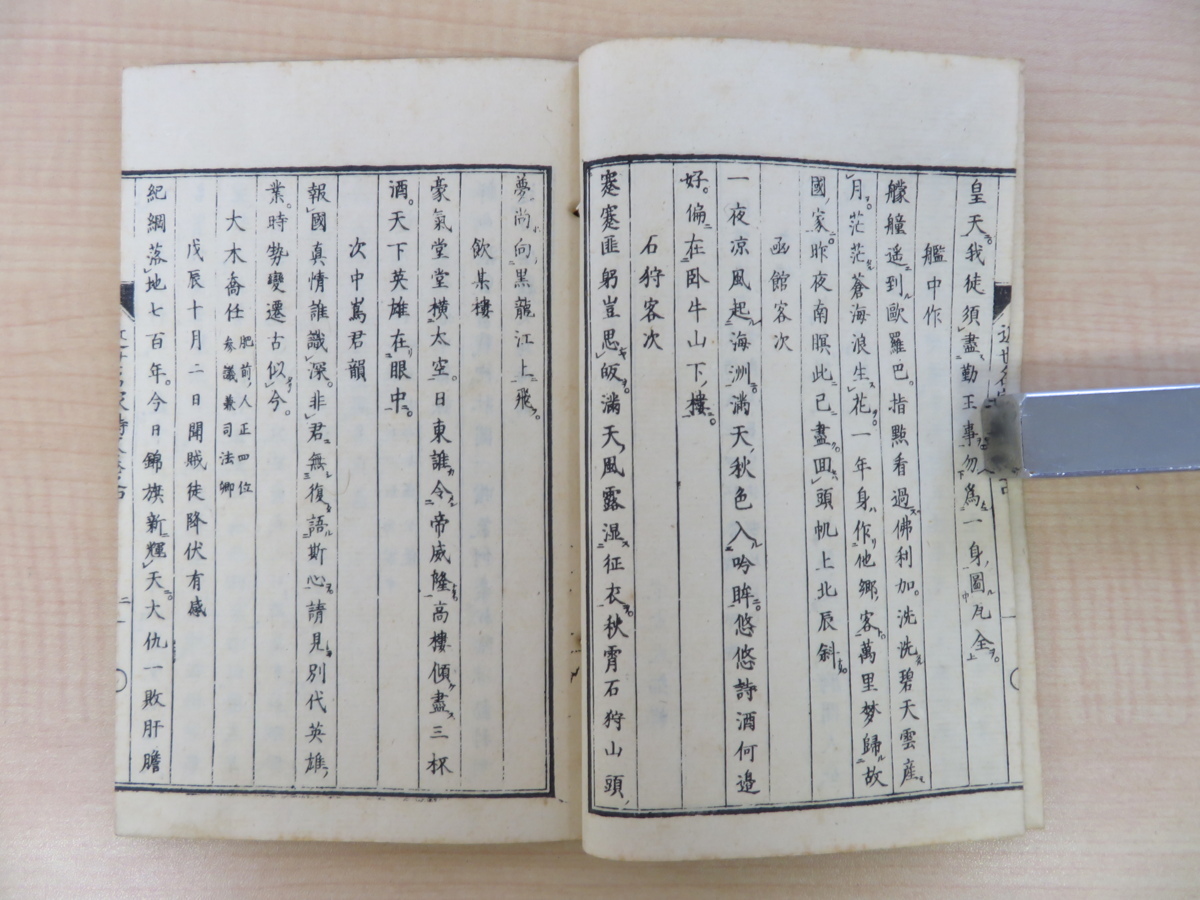 皇天我徒須盡勤王事勿爲一身圖瓦全
艦中作
艨艟遥到歐羅巴。指點看過佛利加。洗洗碧天雲産
月。茫茫蒼海浪生花。一年身作他鄉客。萬里梦歸故
國家。昨夜南瞑此已盡。回頭帆上北辰斜。
函館客次
一夜凉風起海洲。滿天秋色入吟眸。悠悠詩酒何邉
好。偏在卧牛山下樓。
石狩客次
蹇蹇匪躬豈思皈。滿天風露湿征衣。秋霄石狩山頭
夢。尚向黒龍江上飛。
飲某樓
豪氣堂堂横太空。日東誰令帝威隆。高樓傾盡三杯
酒。天下英雄在眼中。
次中嶌君韻
報國真情誰識深。非君無復語斯心。請見別代英雄
業。時勢變遷古似今。
大木喬任 肥前人正四位 参議兼司法卿
戊辰十月二日聞賊徒降伏有感
紀綱落地七百年。今日錦旗新輝天。大仇一敗肝膽